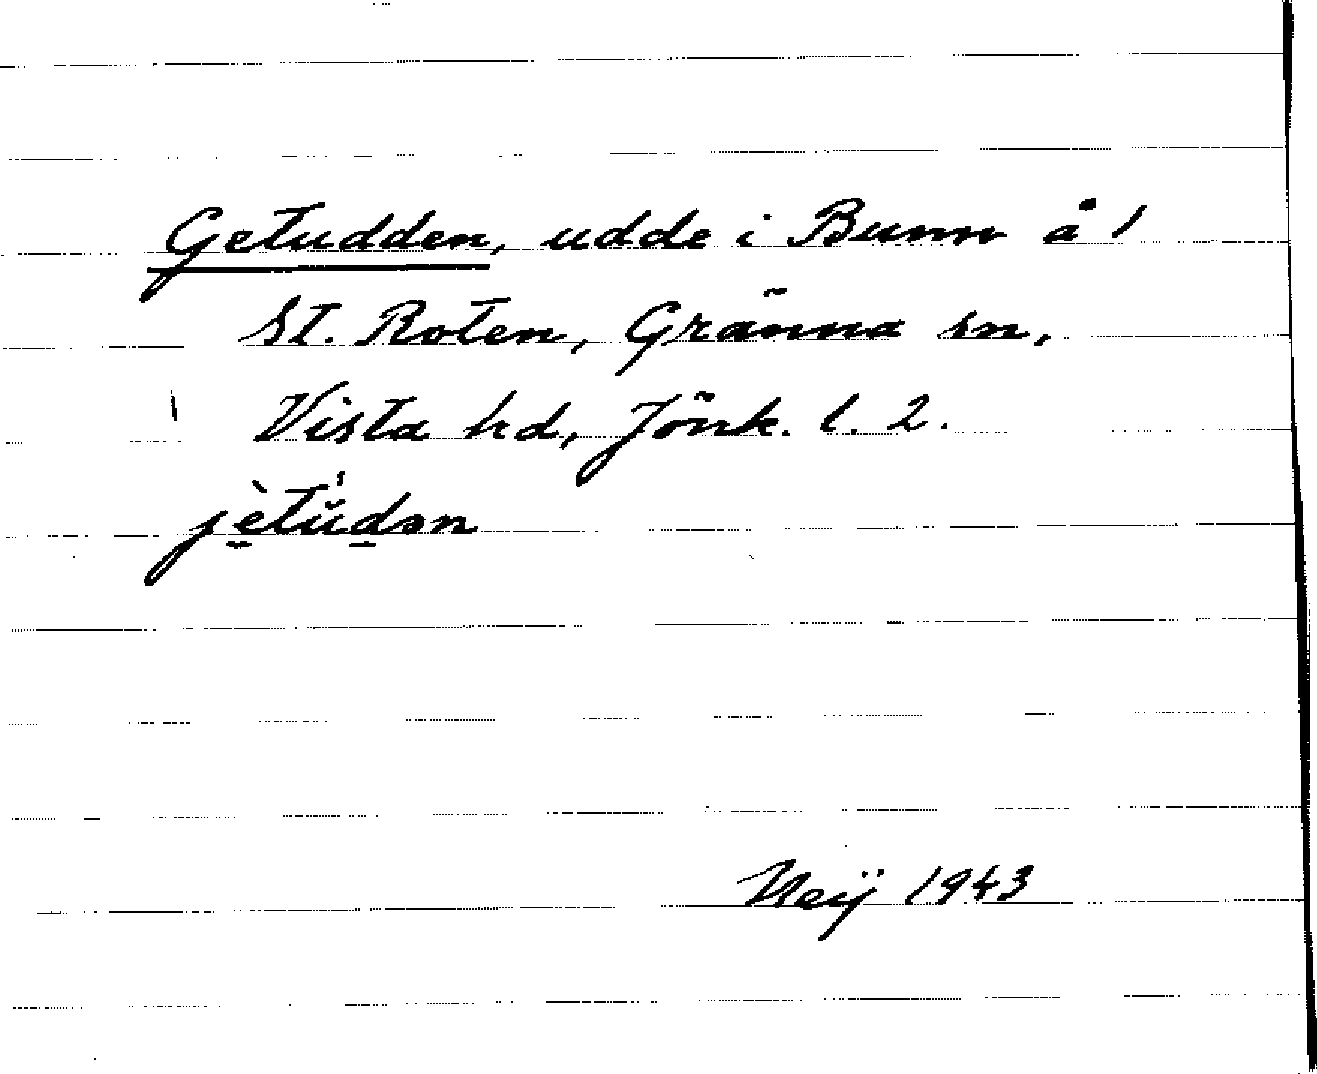 Getudden, udde i Bunn å 1
St. Roten, Gränna sn,
Vista hd, Jönk. l. 2.
jètùdən
Neÿ 1943